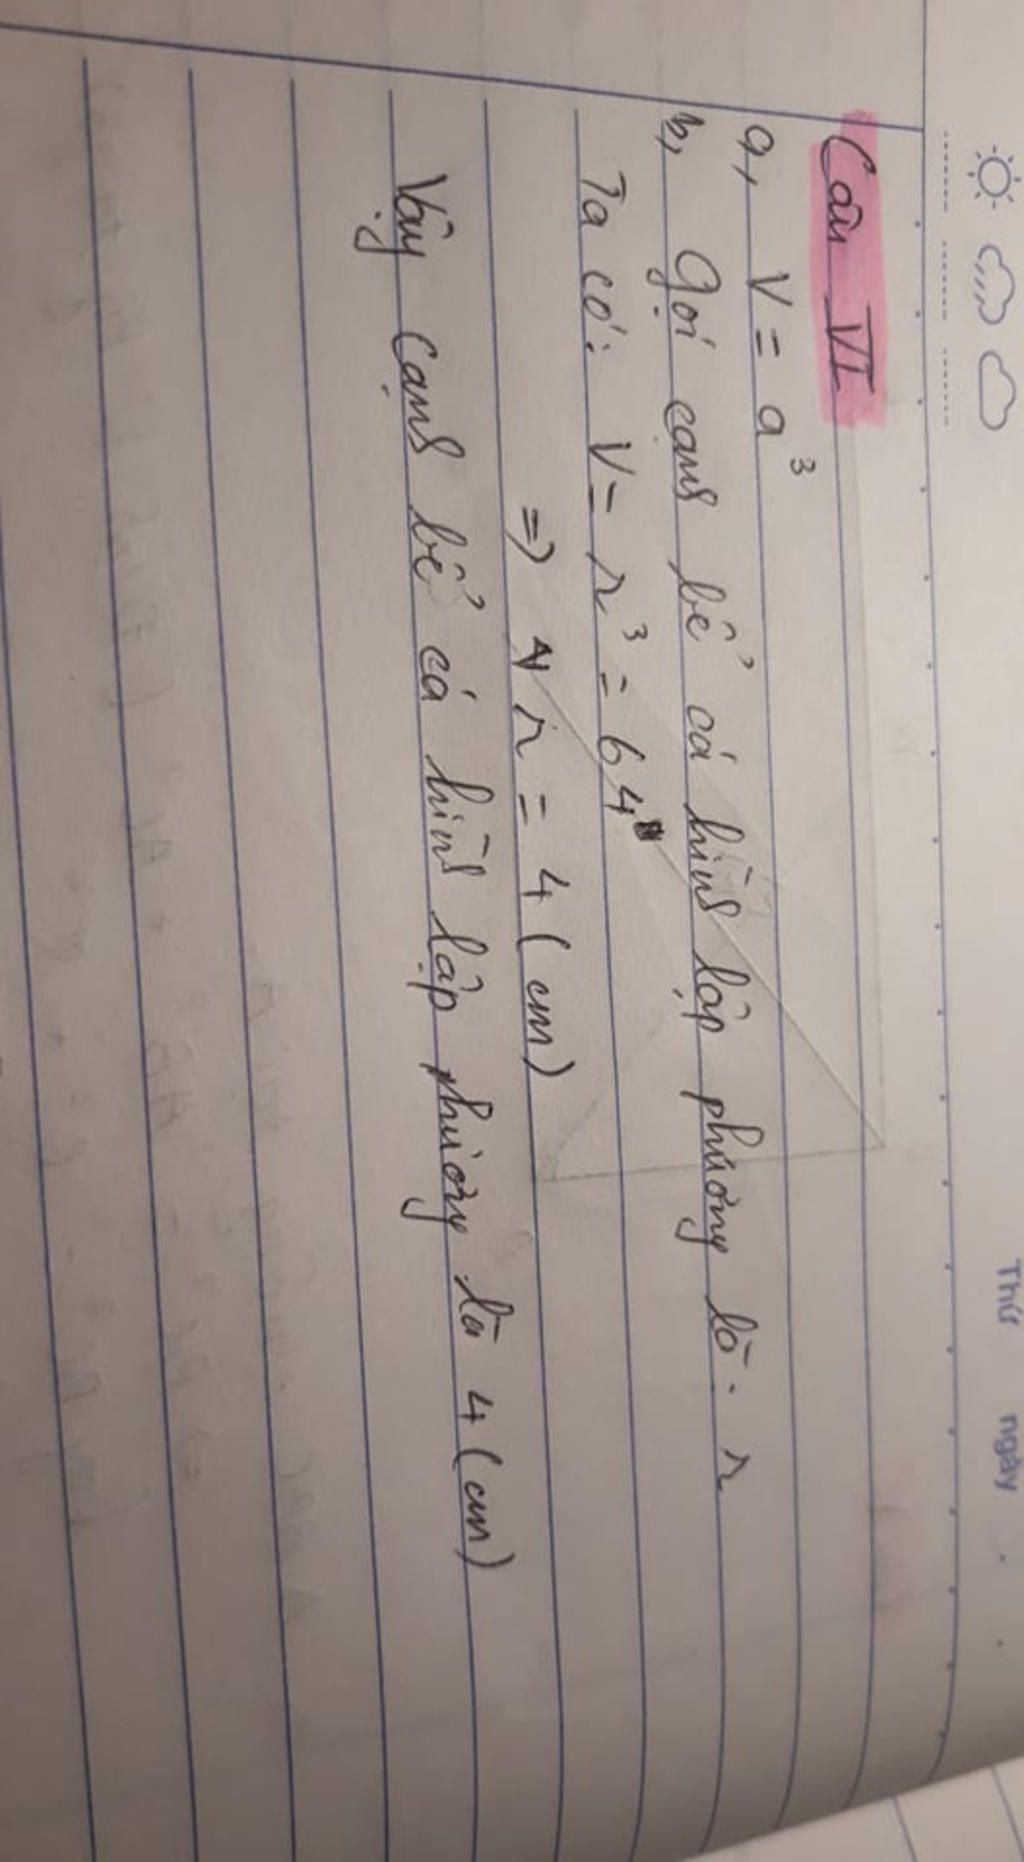 Thứ ngày
Câu VI
a, V = a³
b, Gọi cạnh bể cá hình lập phương là: r
Ta có: V = r³ = 64
=> r = 4 (cm)
Vậy cạnh bể cá hình lập phương là 4 (cm)